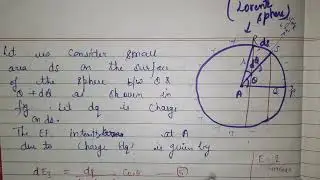 (Lorentz
Sphere)
Let us Consider small
area ds on the surface
of the sphere b/w θ &
θ + dθ as shown in
fig. Let dq is Charge
on ds.
The EF Intensity at A
due to Charge 'dq' is given by
dE₂ = dq cosθ — ⑤
R
ds
S
θ
A
Q
E = 1